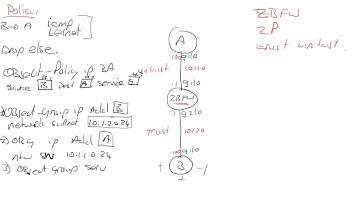 Policy
B→A icmp
telnet
Drop else
Object-Policy ip BA
Source B Dest A service
1) Object-group ip Add B
network subnet 10.1.2.0 24
2) ip Add A
10.1.1.0 24
3) Object group serv
A
.100
10.1.1.0
untrust
.1 g1/0
ZBFW
.1 g2/0
trust
10.1.2.0
.100
B
ZBFW
ZP
trust untrust